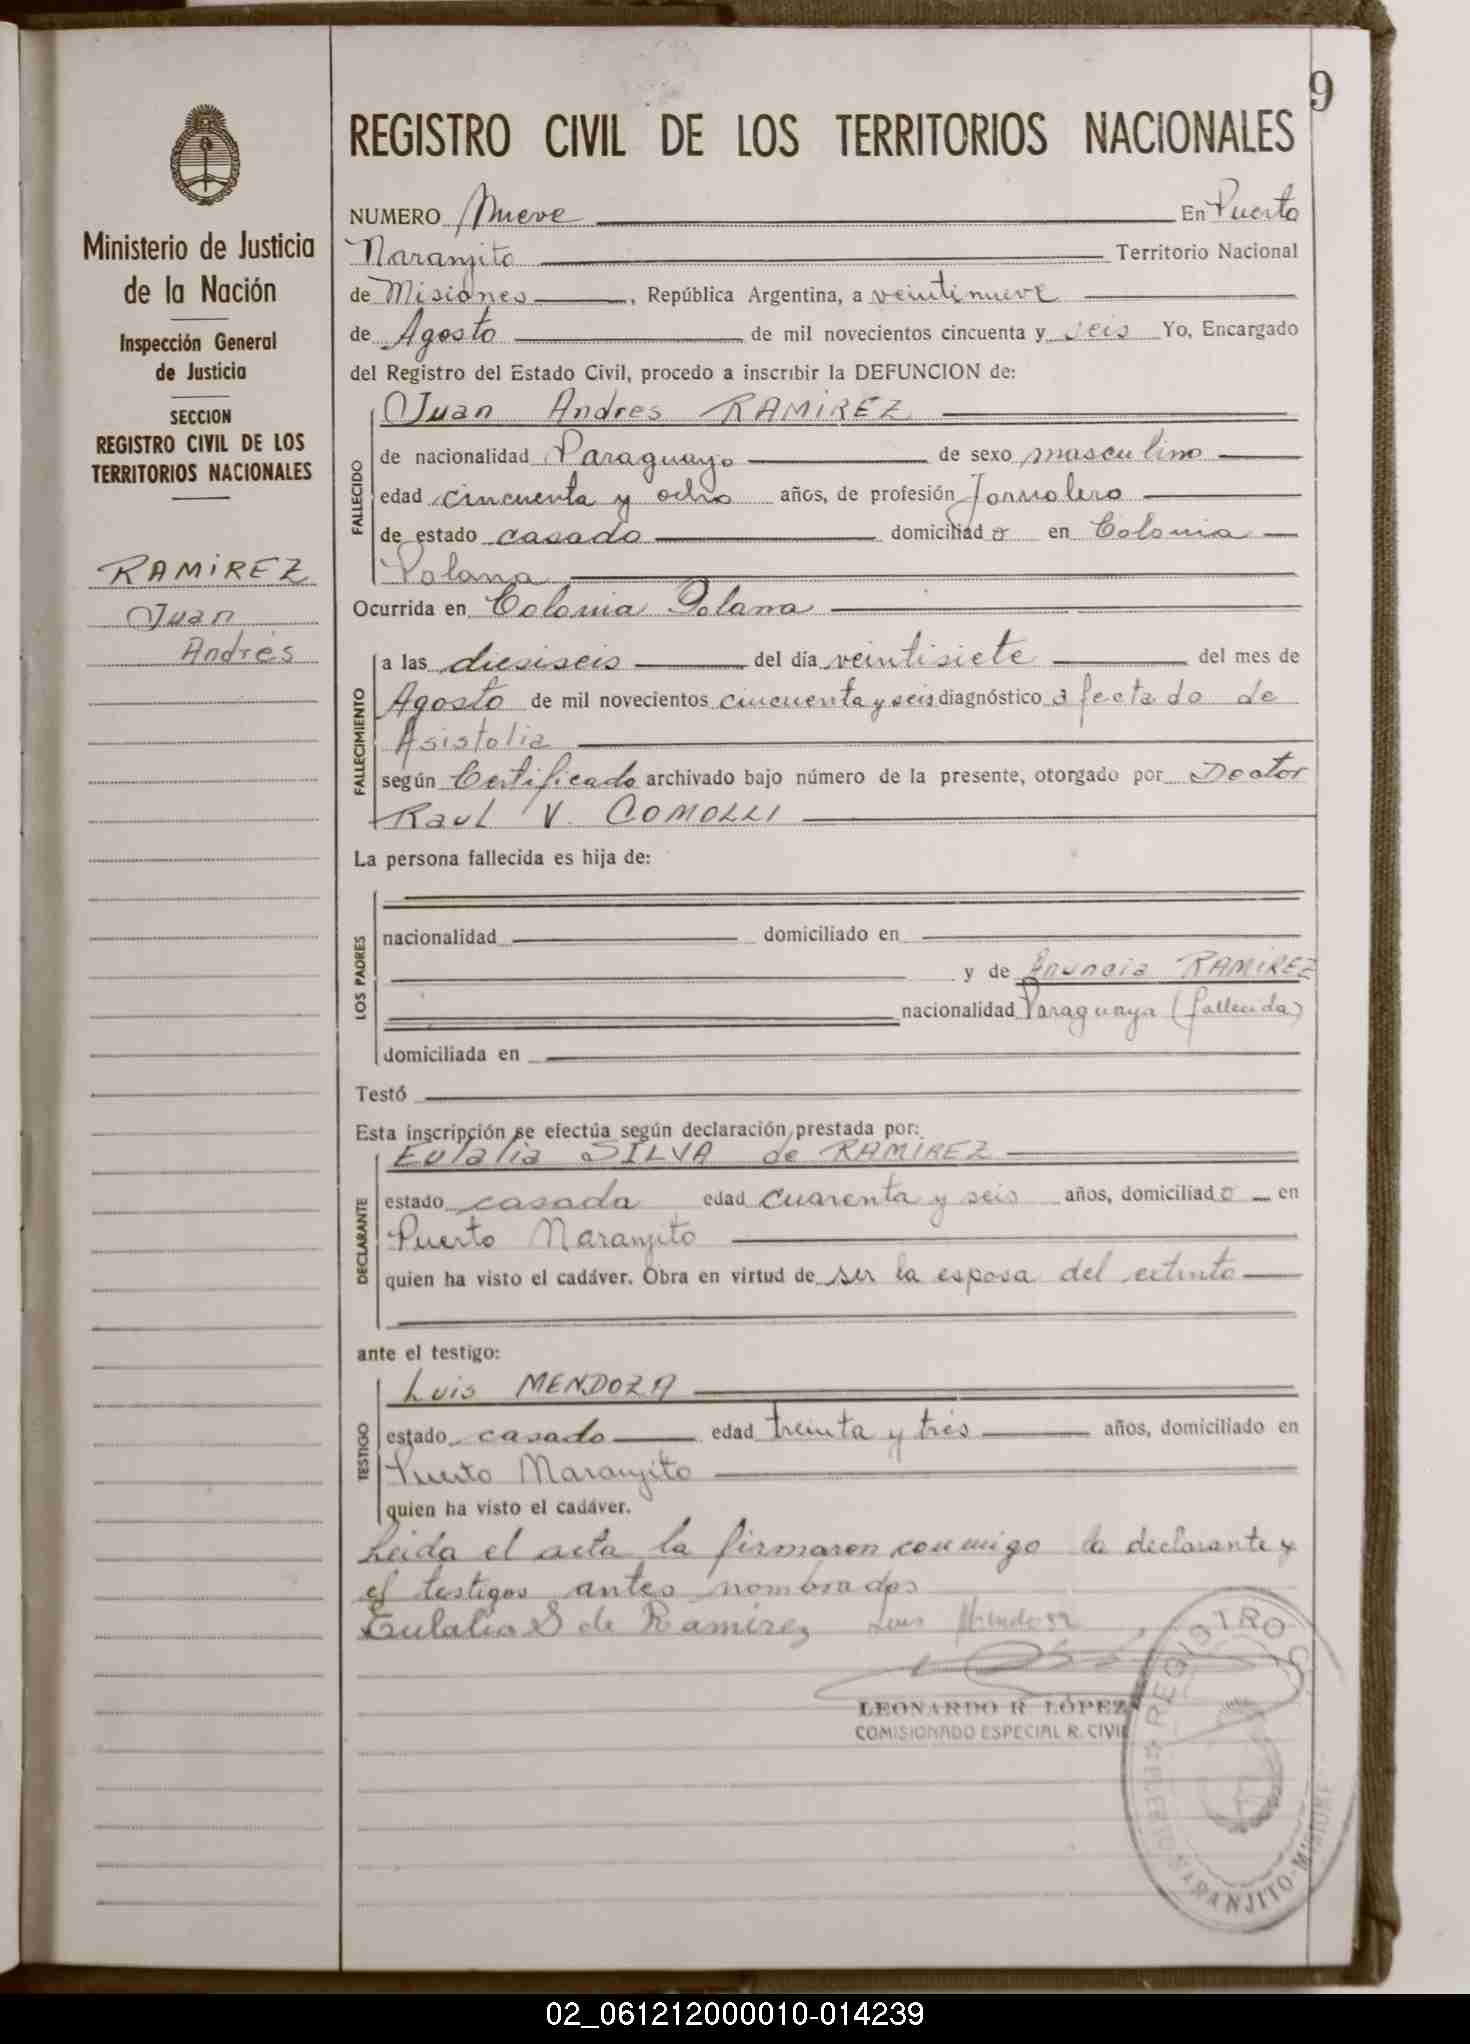 9
REGISTRO CIVIL DE LOS TERRITORIOS NACIONALES
Ministerio de Justicia
de la Nación
Inspección General
de Justicia
SECCION
REGISTRO CIVIL DE LOS
TERRITORIOS NACIONALES
RAMIREZ
Juan
Andrés
NUMERO Nueve En Puerto
Naranjito Territorio Nacional
de Misiones, República Argentina, a veintinueve
de Agosto de mil novecientos cincuenta y seis Yo, Encargado
del Registro del Estado Civil, procedo a inscribir la DEFUNCION de:
FALLECIDO
Juan Andres RAMIREZ
de nacionalidad Paraguayo de sexo masculino
edad cincuenta y ocho años, de profesión Jornalero
de estado casado domiciliado en Colonia
Polana
Ocurrida en Colonia Polana
FALLECIMIENTO
a las diesiseis del día veintisiete del mes de
Agosto de mil novecientos cincuenta y seis diagnóstico afectado de
Asistolia
según Certificado archivado bajo número de la presente, otorgado por Doctor
Raul V. COMOLLI
La persona fallecida es hija de:
LOS PADRES
nacionalidad domiciliado en
y de Anuncia RAMIREZ
nacionalidad Paraguaya (fallecida)
domiciliada en
Testó
Esta inscripción se efectúa según declaración prestada por:
DECLARANTE
Eulalia SILVA de RAMIREZ
estado casada edad cuarenta y seis años, domiciliado en
Puerto Naranjito
quien ha visto el cadáver. Obra en virtud de ser la esposa del extinto
ante el testigo:
TESTIGO
Luis MENDOZA
estado casado edad treinta y trés años, domiciliado en
Puerto Naranjito
quien ha visto el cadáver.
Leida el acta la firmaron conmigo la declarante y
el testigos antes nombrados
Eulalia S de Ramirez Luis Mendoza
LEONARDO R LÓPEZ
COMISIONADO ESPECIAL R. CIVIL
REGISTRO C
NARANJITO-MISIONE
02_061212000010-014239